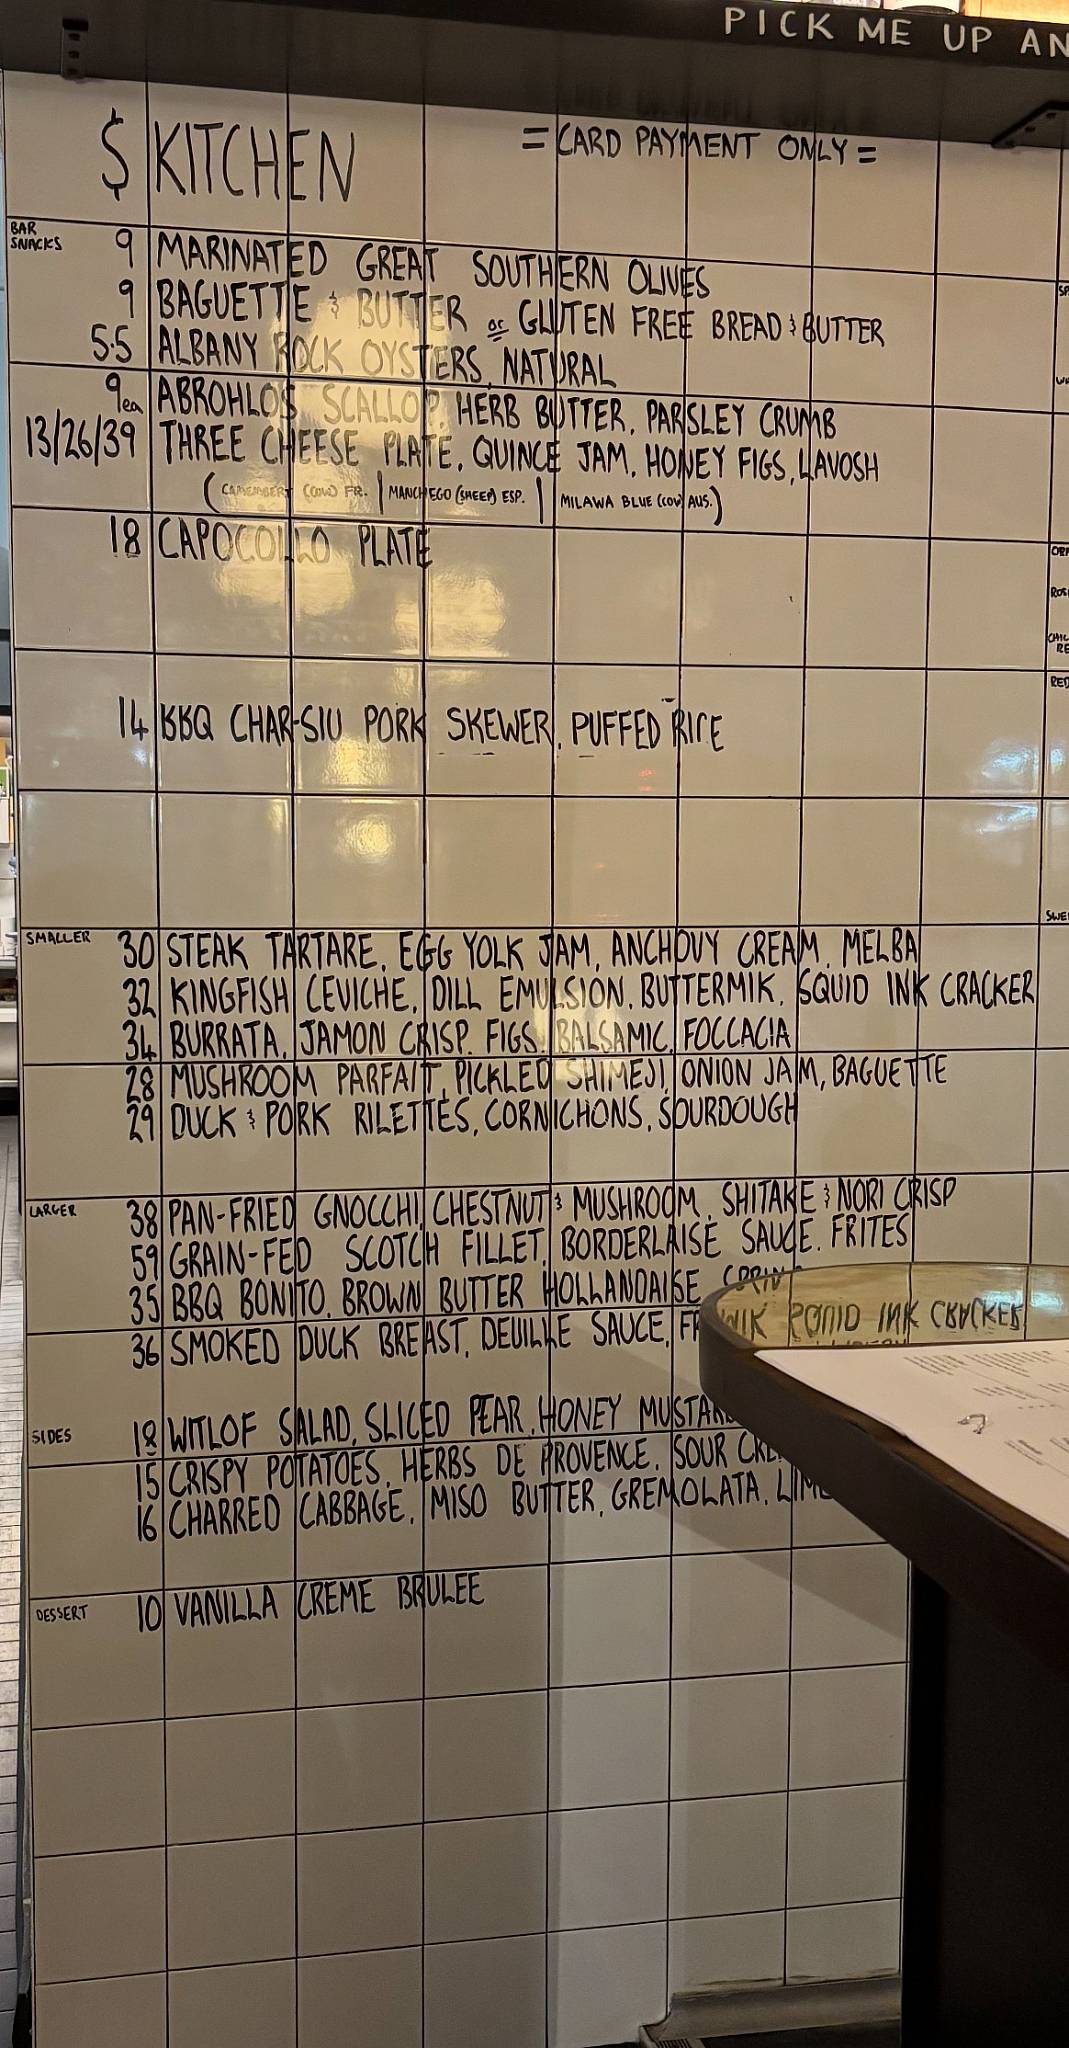 PICK ME UP AN
$ KITCHEN
= CARD PAYMENT ONLY =
BAR SNACKS
9 MARINATED GREAT SOUTHERN OLIVES
9 BAGUETTE & BUTTER or GLUTEN FREE BREAD & BUTTER
5.5 ALBANY ROCK OYSTERS, NATURAL
9ea ABROHLOS SCALLOP, HERB BUTTER, PARSLEY CRUMB
13/26/39 THREE CHEESE PLATE, QUINCE JAM, HONEY FIGS, LAVOSH
(CAMEMBERT (COW) FR. | MANCHEGO (SHEEP) ESP. | MILAWA BLUE (COW) AUS.)
18 CAPOCOLLO PLATE
14 BBQ CHAR-SIU PORK SKEWER, PUFFED RICE
SMALLER
30 STEAK TARTARE, EGG YOLK JAM, ANCHOVY CREAM, MELBA
32 KINGFISH CEVICHE, DILL EMULSION, BUTTERMIK, SQUID INK CRACKER
34 BURRATA, JAMON CRISP, FIGS, BALSAMIC, FOCCACIA
28 MUSHROOM PARFAIT, PICKLED SHIMEJI, ONION JAM, BAGUETTE
29 DUCK & PORK RILETTES, CORNICHONS, SOURDOUGH
LARGER
38 PAN-FRIED GNOCCHI, CHESTNUT & MUSHROOM, SHITAKE & NORI CRISP
59 GRAIN-FED SCOTCH FILLET, BORDERLAISE SAUCE, FRITES
35 BBQ BONITO, BROWN BUTTER HOLLANDAISE,
36 SMOKED DUCK BREAST, DEUILLE SAUCE,
SIDES
18 WITLOF SALAD, SLICED PEAR, HONEY MUSTARD
15 CRISPY POTATOES, HERBS DE PROVENCE, SOUR
16 CHARRED CABBAGE, MISO BUTTER, GREMOLATA, LIME
DESSERT
10 VANILLA CREME BRULEE